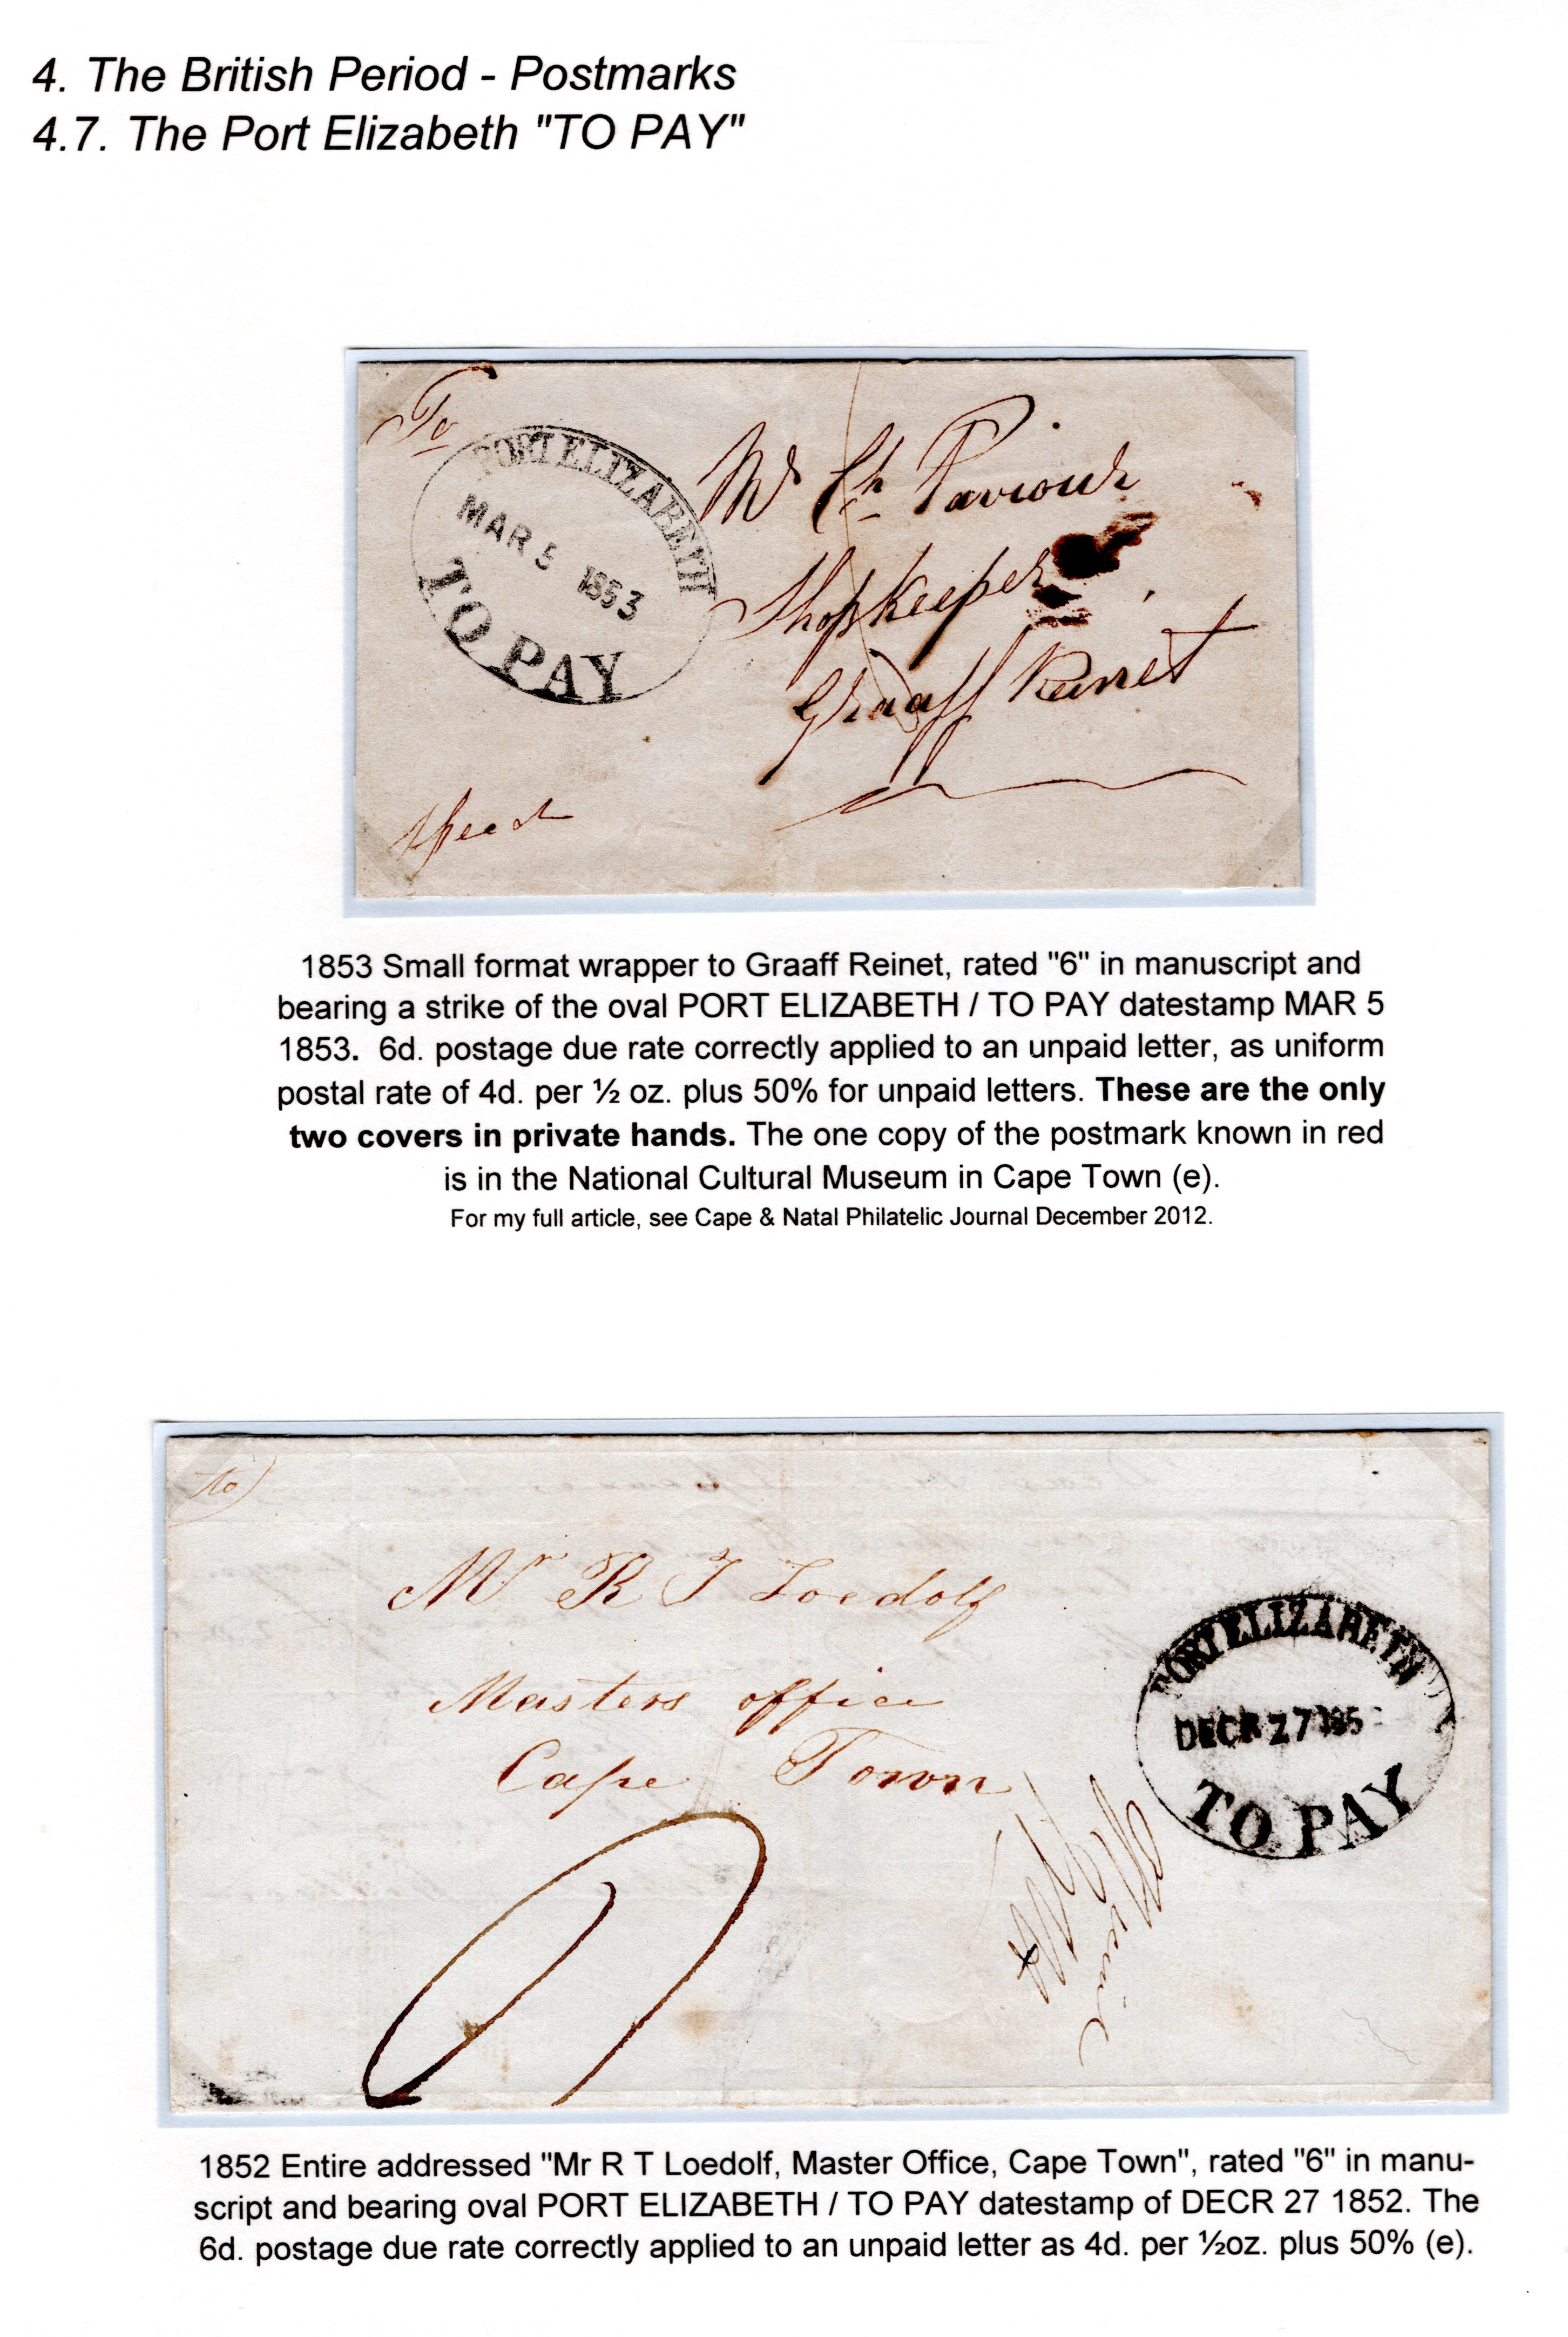 4. The British Period - Postmarks
4.7. The Port Elizabeth "TO PAY"
To
PORT ELIZABETH
MAR 5 1853
TO PAY
Mr Ch Paviour
Shopkeeper
Graaff Reinet
Speed
1853 Small format wrapper to Graaff Reinet, rated "6" in manuscript and
bearing a strike of the oval PORT ELIZABETH / TO PAY datestamp MAR 5
1853.  6d. postage due rate correctly applied to an unpaid letter, as uniform
postal rate of 4d. per ½ oz. plus 50% for unpaid letters. These are the only
two covers in private hands. The one copy of the postmark known in red
is in the National Cultural Museum in Cape Town (e).
For my full article, see Cape & Natal Philatelic Journal December 2012.
to
Mr R T Loedolf
Masters office
Cape Town
PORT ELIZABETH
DECR 27 185
TO PAY
1852 Entire addressed "Mr R T Loedolf, Master Office, Cape Town", rated "6" in manu-
script and bearing oval PORT ELIZABETH / TO PAY datestamp of DECR 27 1852. The
6d. postage due rate correctly applied to an unpaid letter as 4d. per ½oz. plus 50% (e).